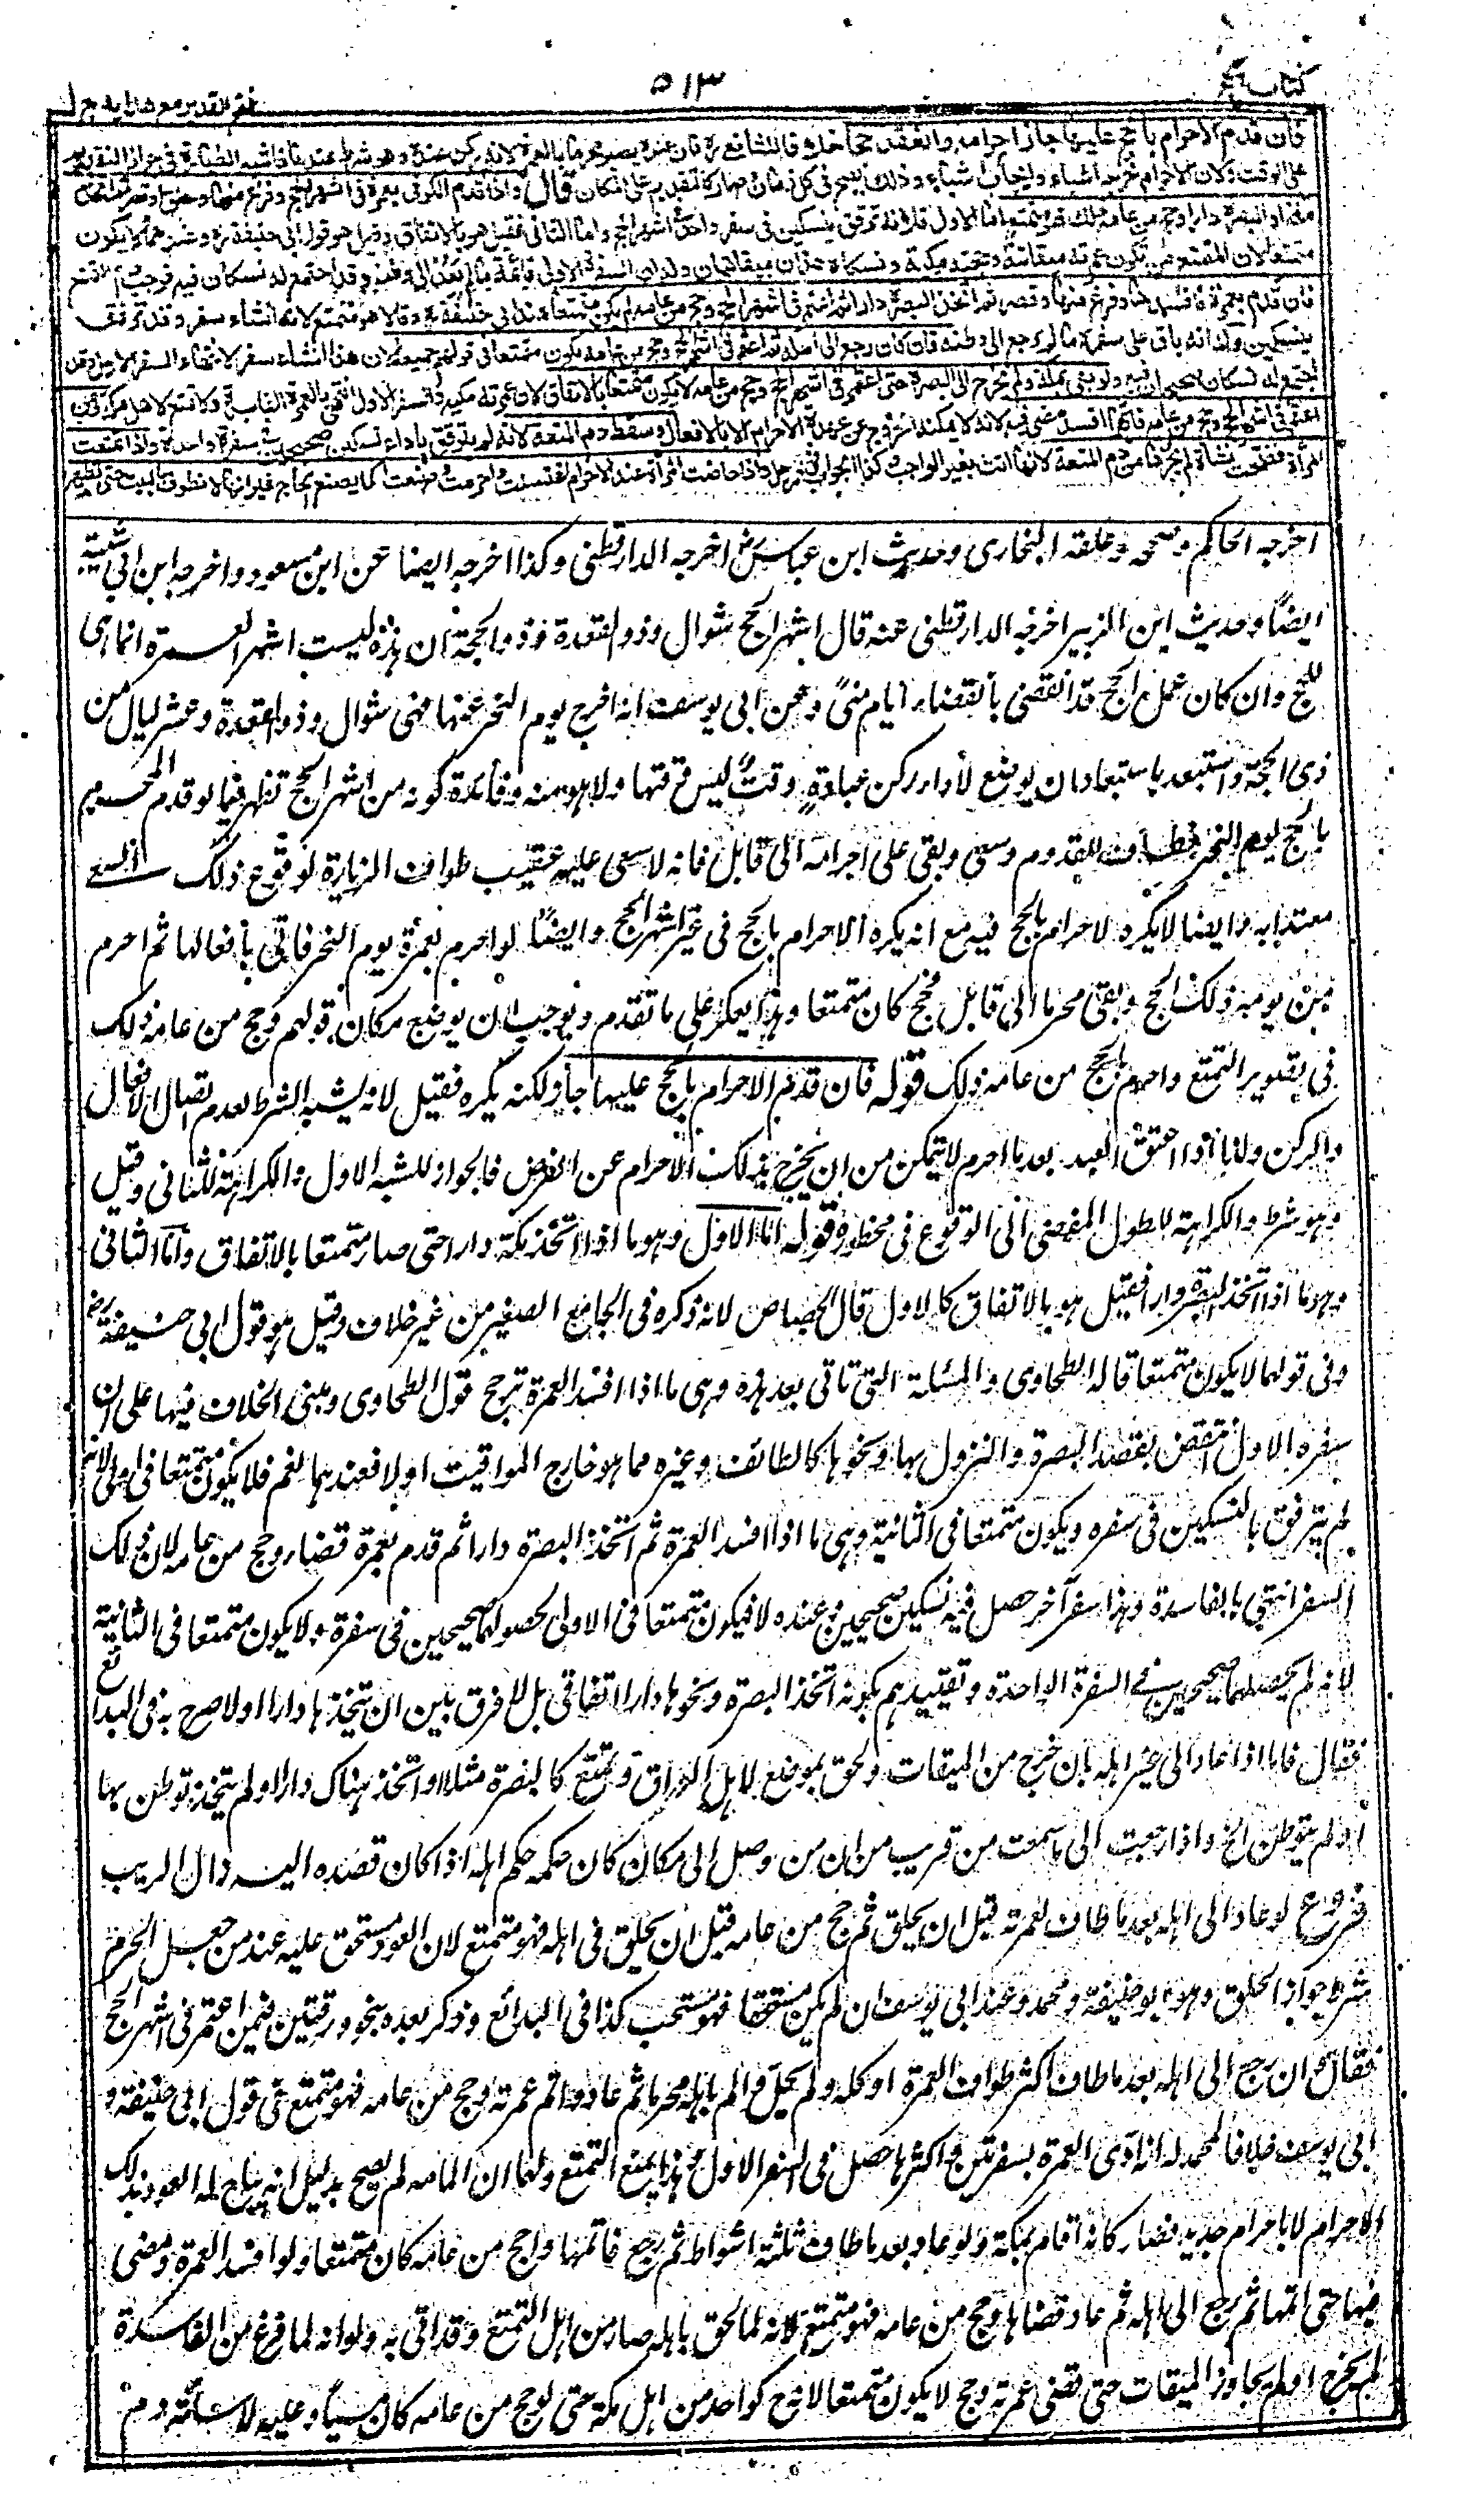 كتاب الحج
٥١٣
فتح القدير مع هداية ج ١
فان قدم الاحرام بالحج عليها جاز احرامه وانعقد حجا خلافا للشافعي رح فان عنده يصير محرما بالعمرة لانه ركن عنده وهو شرط عندنا فاشبه الطهارة في جواز التقديم
على الوقت ولان الاحرام تحريم اشياء وايجاب اشياء وذلك يصح في كل زمان فصار كالتقديم على المكان قال واذا قدم الكوفي بعمرة في اشهر الحج وفرغ منها وحلق او قصر ثم اتخذ
مكة او البصرة دارا وحج من عامه ذلك فهو متمتع اما الاول فلانه ترفق بنسكين في سفر واحد في اشهر الحج واما الثاني فقيل هو بالاتفاق وقيل هو قول ابي حنيفة رح وعندهما لا يكون
متمتعا لان المتمتع من تكون عمرته ميقاتية وحجته مكية ونسكاه هذان ميقاتيان وله ان السفرة الاولى قائمة ما لم يعد الى وطنه وقد اجتمع له نسكان فيه فوجب دم التمتع
فان قدم بعمرة فافسدها وفرغ منها وقصر ثم اتخذ البصرة دارا ثم اعتمر في اشهر الحج وحج من عامه لم يكن متمتعا عند ابي حنيفة رح وقالا هو متمتع لانه انشاء سفر وقد ترفق فيه
بنسكين وله انه باق على سفره ما لم يرجع الى وطنه فان كان رجع الى اهله ثم اعتمر في اشهر الحج وحج من عامه يكون متمتعا في قولهم جميعا لان هذا انشاء سفر لانتهاء السفر الاول وقد
اجتمع له نسكان صحيحان فيه ولو بقي بمكة ولم يخرج الى البصرة حتى اعتمر في اشهر الحج وحج من عامه لا يكون متمتعا بالاتفاق لان عمرته مكية والسفر الاول انتهى بالعمرة الفاسدة ولا تمتع لاهل مكة ومن
اعتمر في اشهر الحج وحج من عامه فايهما افسد مضى فيه لانه لا يمكنه الخروج عن عهدة الاحرام الا بالافعال وسقط دم المتعة لانه لم يترفق باداء نسكين صحيحين في سفرة واحدة واذا تمتعت
المرأة فضحت بشاة لم يجزها عن دم المتعة لانها اتت بغير الواجب وكذا الجواب في الرجل واذا حاضت المرأة عند الاحرام اغتسلت واحرمت وصنعت كما يصنع الحاج غير انها لا تطوف بالبيت حتى تطهر
اخرجه الحاكم وصححه وعلقه البخارى وحديث ابن عباس رض اخرجه الدارقطنى وكذا اخرجه ايضا عن ابن مسعود واخرجه ابن ابى شيبة
ايضًا وحديث ابن الزبير اخرجه الدارقطنى عنه قال اشهر الحج شوال وذو القعدة وذو الحجة ان هذه ليست اشهر العمرة انما هى
للحج وان كان عمل الحج قد انقضى بانقضاء ايام منىً وعن ابى يوسف انه اخرج يوم النحر عنها فهى شوال وذو القعدة وعشر ليال من
ذى الحجة واستبعد باستبعاد ان يوضع لأداء ركن عبادةٍ وقتٌ ليس وقتها ولا هو منه وفائدة كونه من اشهر الحج تظهر فيما لو قدم المحرم
بالحج يوم النحر فطاف للقدوم وسعى وبقى على احرامه الى قابل فانه لا سعى عليه عقيب طواف الزيارة لوقوع ذلك السعى
معتدابه وايضا لا يكره الاحرام بالحج فيه مع انه يكره الاحرام بالحج فى غير اشهر الحج وايضًا لو احرم بعمرة يوم النحر فاتى بأفعالها ثم احرم
من يومه ذلك بالحج وبقى محرما الى قابل فحج كان متمتعا وهذا يعكر على ما تقدم ويوجب ان يوضع مكان قولهم وحج من عامه ذلك
فى تصوير التمتع واحرم بالحج من عامه ذلك قوله فان قدم الاحرام بالحج عليها جاز لكنه يكره فقيل لانه يشبه الشرط لعدم اتصال الافعال
والركن ولذا اذا اعتق العبد بعد ما احرم لا يتمكن من ان يخرج بذلك الاحرام عن الفرض فالجواز للشبه الاول والكراهة للثانى وقيل
وهو شرط والكراهة للطول المفضى الى الوقوع فى محظوره قوله اما الاول وهو ما اذا اتخذ مكة دارا حتى صار متمتعا بالاتفاق واما الثانى
وهو ما اذا اتخذ البصرة دارا فقيل هو بالاتفاق كالاول قال الجصاص لانه ذكره فى الجامع الصغير من غير خلاف وقيل هو قول ابى حنيفة رض
وفى قولهما لا يكون متمتعا قاله الطحاوى والمسئلة التى تاتى بعد هذه وهى ما اذا افسد العمرة ترجح قول الطحاوى ومبنى الخلاف فيها على ان
سفره الاول انتقض بقصد البصرة والنزول بها ونحوها كالطائف وغيره مما هو خارج المواقيت اولا فعندهما نعم فلا يكون متمتعا فى الاولى لانه
لم يترفق بالنسكين فى سفره ويكون متمتعا فى الثانية وهى ما اذا افسد العمرة ثم اتخذ البصرة دارا ثم قدم بعمرة قضاء وحج من عامه لان ذلك
السفر انتهى بالفاسدة وهذا سفر آخر حصل فيه نسكين صحيحين وعنده لا فيكون متمتعا فى الاولى لحصولهما صحيحين فى سفرة ولا يكون متمتعا فى الثانية
لانه لم يحصلهما صحيحين فى السفرة الواحدة وتقييدهم بكونه اتخذ البصرة ونحوها دارا اتفاقى بل لا فرق بين ان يتخذها دارا اولا صرح به فى البدائع
فقال فاما اذا عاد الى غير اهله بان خرج من الميقات ولحق بموضع لاهل القران وتمتع كالبصرة مثلا واتخذ هناك دارا ولم يتخذ توطن بها
او لم يتوطن الخ واذا رجعت الى ما سمعت من قريب من ان من وصل الى مكان كان حكمه حكم اهله اذا كان قصده اليه زال الريب
فروع لو عاد الى اهله بعد ما طاف لعمرته قبل ان يحلق ثم حج من عامه قبل ان يحلق فى اهله فهو متمتع لان العود مستحق عليه عند من جعل الحرم
شرط جواز الحلق وهو ابو حنيفة ومحمد وعند ابى يوسف ان لم يكن مستحقا فهو مستحب كذا فى البدائع وذكر بعده بنحو ورقتين فيمن اعتمر فى اشهر الحج
فقال هو ان رجع الى اهله بعد ما طاف اكثر طواف العمرة او كله ولم يحل والم باهله محرما ثم عاد واتم عمرته وحج من عامه فهو متمتع فى قول ابى حنيفة و
ابى يوسف خلافا لمحمد له انه ادى العمرة بسفرتين واكثرها حصل فى السفر الاول وهذا يمنع التمتع ولهما ان المامه لم يصح بدليل انه يباح له العود بذلك
الاحرام لا باحرام جديد فصار كانه اقام بمكة ولو عاد بعد ما طاف ثلثة اشواط ثم رجع فاتمها وحج من عامه كان متمتعا ولو افسد العمرة ومضى
فيها حتى اتمها ثم رجع الى اهله ثم عاد قضاها وحج من عامه فهو متمتع لانه لما لحق باهله صار من اهل التمتع وقد اتى به ولو انه لما فرغ من الفاسدة
لم يخرج او لم يجاوز الميقات حتى قضى عمرته وحج لا يكون متمتعا لانه ح كواحد من اهل مكة حتى لو حج من عامه كان مسيأ وعليه لاساءته دم